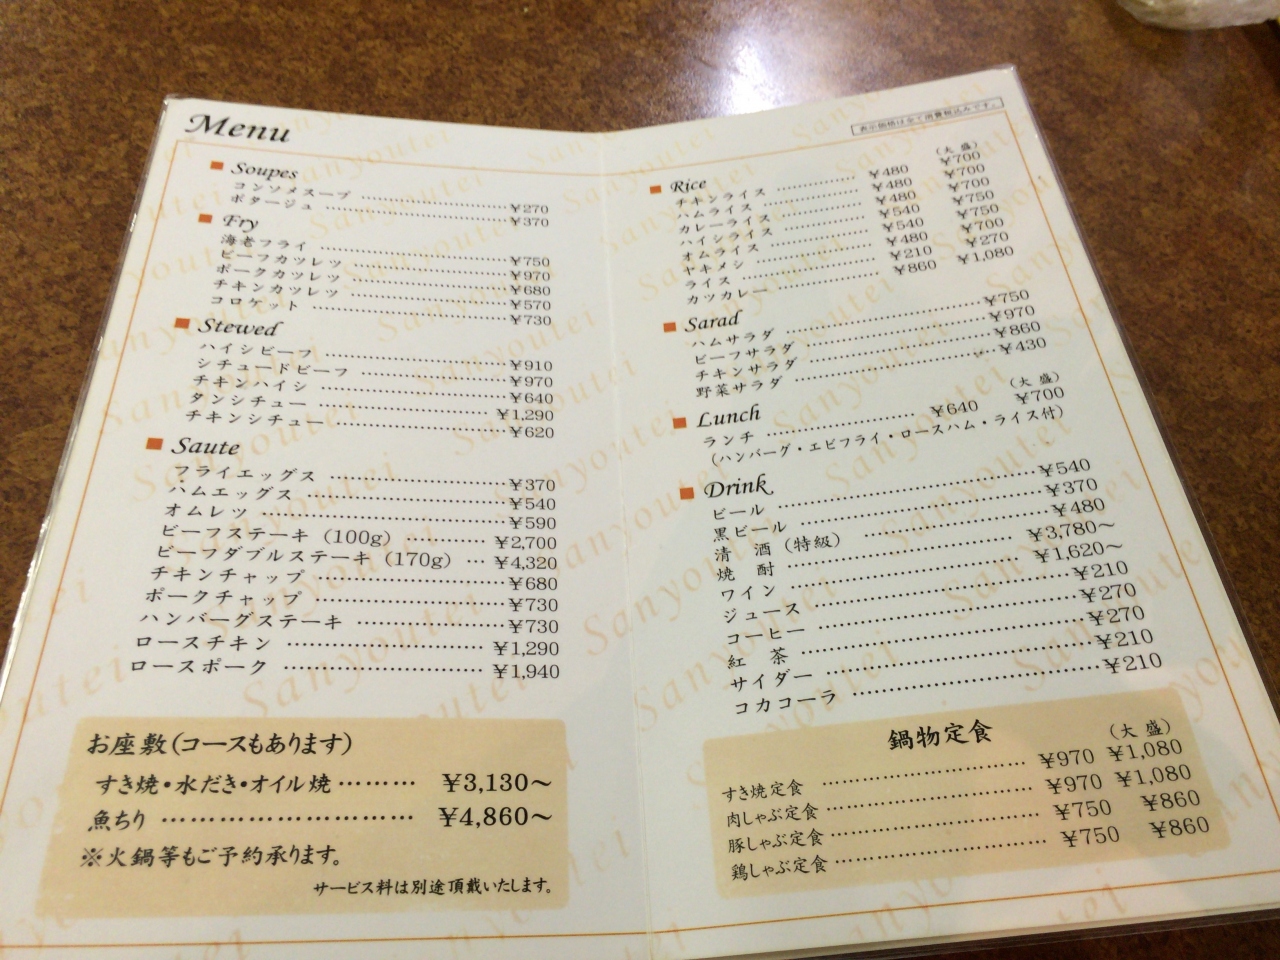 Menu
Soupes
コンソメスープ ¥270
ポタージュ ¥370
Fry
海老フライ ¥750
ビーフカツレツ ¥970
ポークカツレツ ¥680
チキンカツレツ ¥570
コロケット ¥730
Stewed
ハイシビーフ ¥910
シチュードビーフ ¥970
チキンハイシ ¥640
タンシチュー ¥1,290
チキンシチュー ¥620
Saute
フライエッグス ¥370
ハムエッグス ¥540
オムレツ ¥590
ビーフステーキ (100g) ¥2,700
ビーフダブルステーキ (170g) ¥4,320
チキンチャップ ¥680
ポークチャップ ¥730
ハンバーグステーキ ¥730
ロースチキン ¥1,290
ロースポーク ¥1,940
お座敷(コースもあります)
すき焼・水だき・オイル焼 ¥3,130〜
魚ちり ¥4,860〜
※火鍋等もご予約承ります。
サービス料は別途頂戴いたします。
表示価格は全て消費税込みです。
Rice (大盛)
チキンライス ¥480 ¥700
ハムライス ¥480 ¥700
カレーライス ¥480 ¥700
ハイシライス ¥540 ¥750
オムライス ¥540 ¥750
ヤキメシ ¥480 ¥700
ライス ¥210 ¥270
カツカレー ¥860 ¥1,080
Sarad
ハムサラダ ¥750
ビーフサラダ ¥970
チキンサラダ ¥860
野菜サラダ ¥430
Lunch (大盛)
ランチ ¥640 ¥700
(ハンバーグ・エビフライ・ロースハム・ライス付)
Drink
ビール ¥540
黒ビール ¥370
清 酒 (特級) ¥480
焼 酎 ¥3,780〜
ワイン ¥1,620〜
ジュース ¥210
コーヒー ¥270
紅 茶 ¥270
サイダー ¥210
コカコーラ ¥210
鍋物定食 (大盛)
すき焼定食 ¥970 ¥1,080
肉しゃぶ定食 ¥970 ¥1,080
豚しゃぶ定食 ¥750 ¥860
鶏しゃぶ定食 ¥750 ¥860